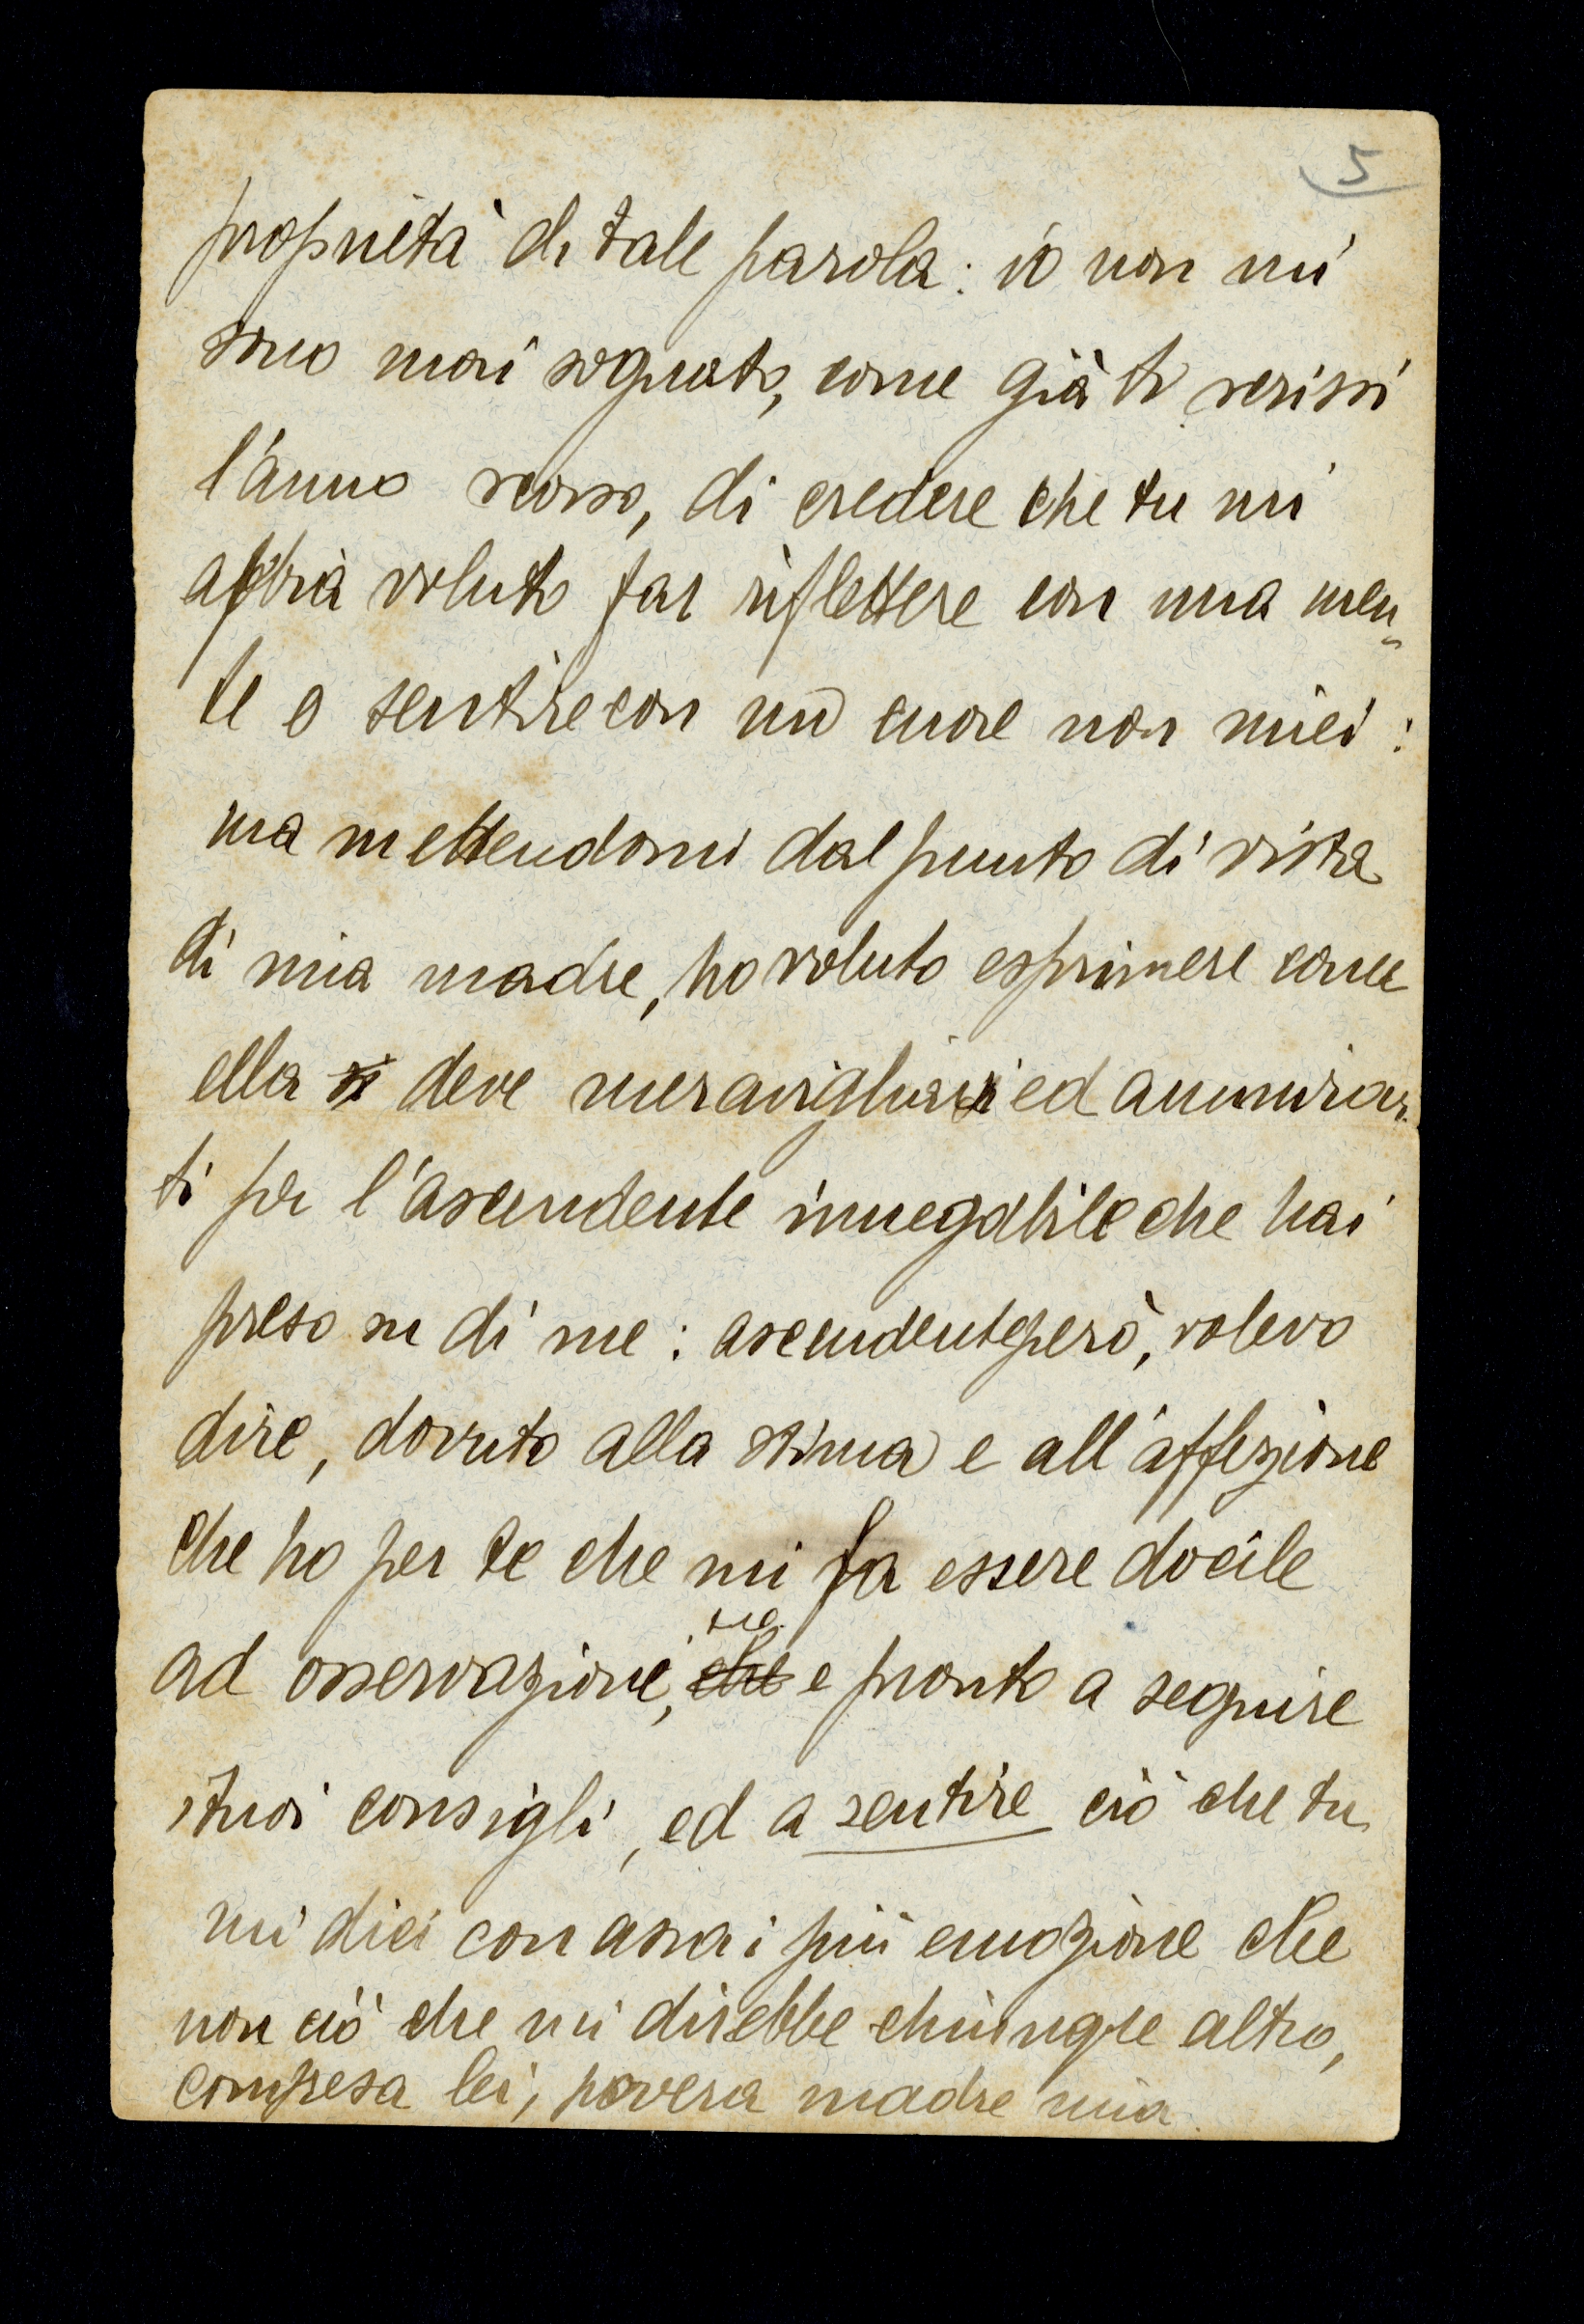 5
proprietà di tale parola: io non mi
sono mai sognato, come già ti scrissi
l'anno scorso, di credere che tu mi
abbia voluto far riflettere con una men=
te o sentire con un cuore non miei:
ma mettendomi dal punto di vista
di mia madre, ho voluto esprimere come
ella si deve meravigliarsi ed ammirar
ti per l'ascendente innegabile che hai
preso su di me: ascendente però, volevo
dire, dovuto alla stima e all'affezione
che ho per te che mi fa essere docile
tue
ad osservazioni, che e pronto a seguire
i tuoi consigli, ed a sentire ciò che tu
mi dici con assai più emozione che
non ciò che mi direbbe chiunque altro,
compresa lei, povera madre mia.